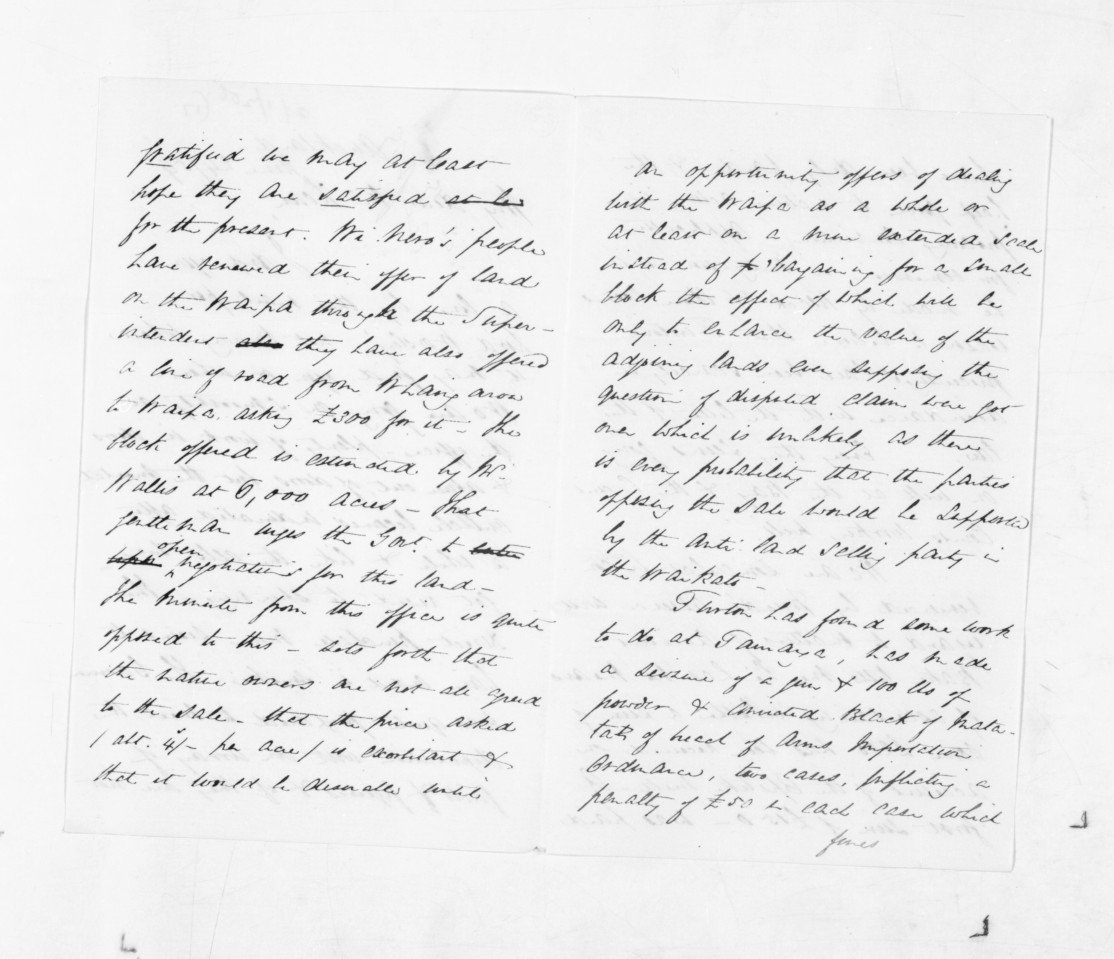 gratified we may at least
hope they are satisfied at le
for the present. Wi Nero's people
have renewed their offer of land
on the Waipa through the Super-
intendent also they have also offered
a line of road from Whaingaroa
to Waipa. asking £300 for it - The
block offered is estimated by Mr.
Wallis at 6,000 acres - That
gentleman urges the Govt. to enter
upon open negotiations for this land -
The Minute from this office is quite
opposed to this - sets forth that
the native owners are not all agreed
to the sale - that the price asked
/ abt. 4/- per acre / is exorbitant &
that it would be desirable until
an opportunity offers of dealing
with the Waipa as a whole or
at least on a more extended scale
instead of bargaining for a small
block the effect of which will be
only to enhance the value of the
adjoining lands even supposing the
question of disputed claim were got
over which is unlikely as there
is every probability that the parties
opposing the sale would be supported
by the anti land selling party in
the Waikato -
Turton has found some work
to do at Tauranga, has made
a seizure of a gun & 100 lbs of
powder & convicted Black of Mata-
ta of breach of Arms Importation
Ordinance, two cases, inflicting a
penalty of £50 in each case which
fines